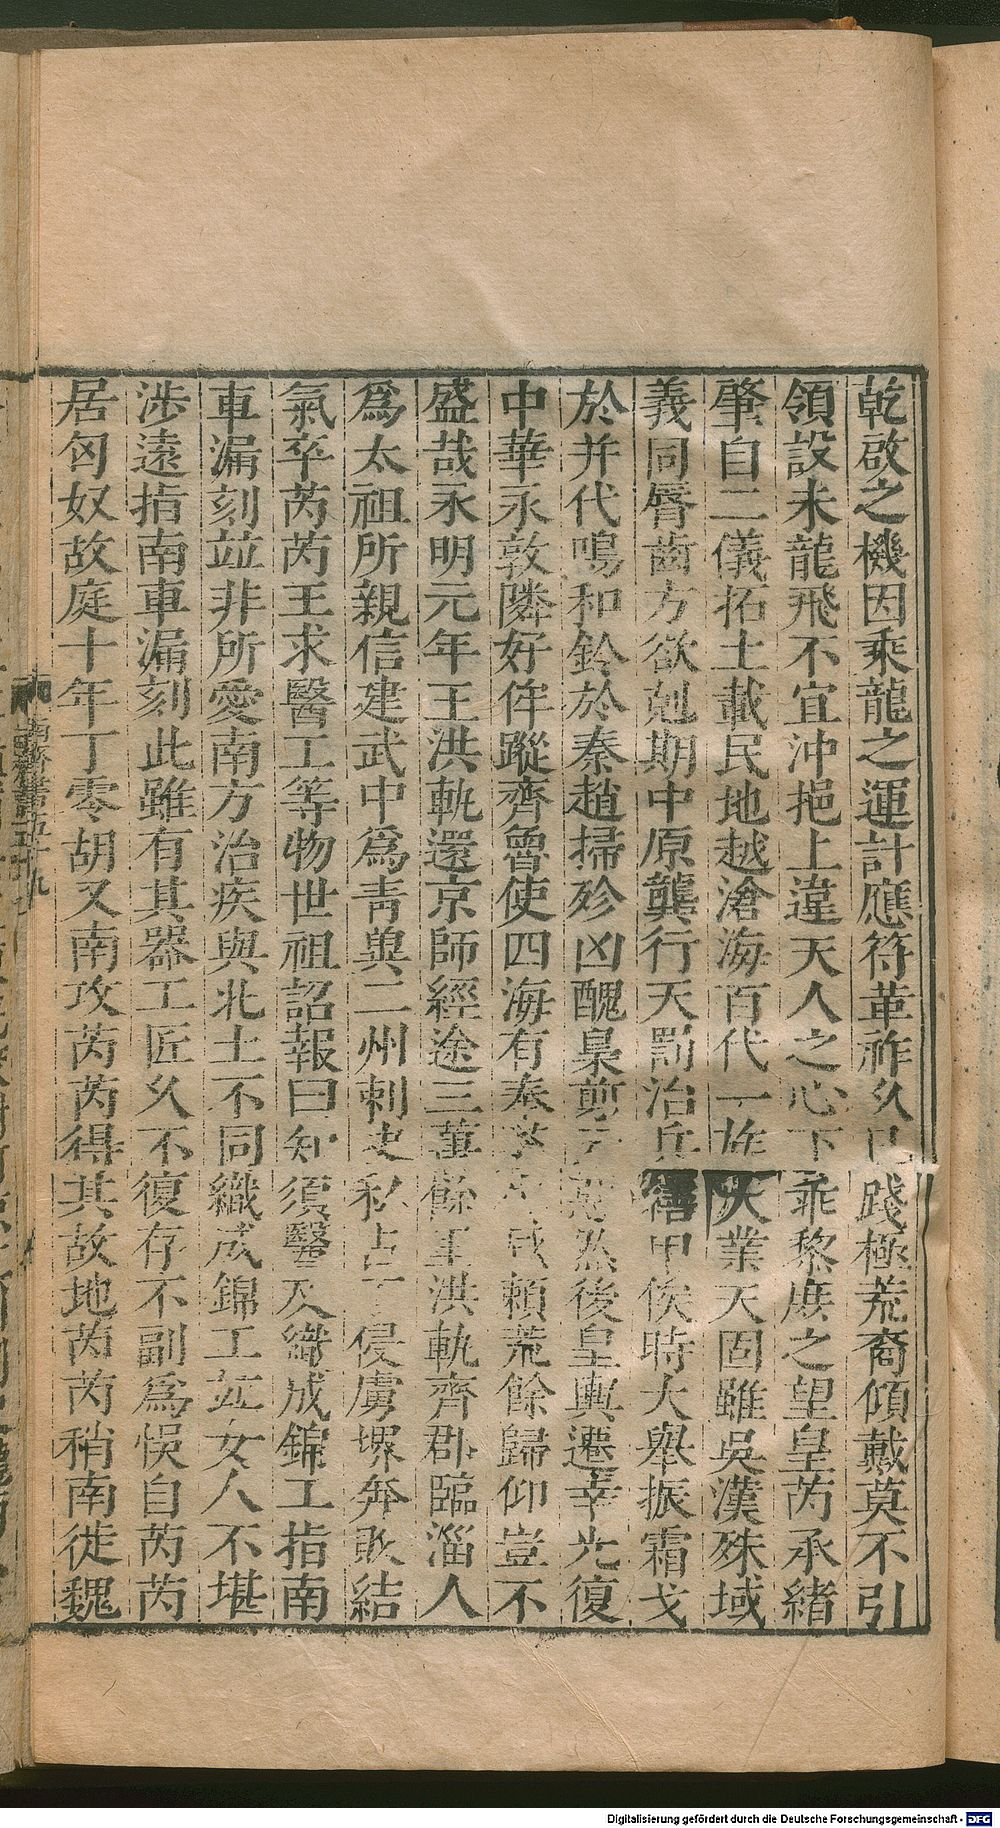 乾啟之機因乘龍之運計應符革祚久已踐極荒裔傾戴莫不引
領設未龍飛不宜沖挹上違天人之心下乖黎庶之望皇芮承緒
肇自二儀拓土載民地越滄海百代一族大業天固雖吳漢殊域
義同脣齒方欲剋期中原龔行天罰治兵繕甲俟時大舉振霜戈
於并代鳴和鈴於秦趙掃殄凶醜梟剪元惡然後皇輿遷幸光復
中華永敦隣好侔蹤齊魯使四海有奉蒼咸賴荒餘歸仰豈不
盛哉永明元年王洪軌還京師經途三萬餘里洪軌齊郡臨淄人
爲太祖所親信建武中爲靑兾二州刺史私占丁侵虜堺奔敗結
氣卒芮芮王求醫工等物世祖詔報曰知須醫及織成錦工指南
車漏刻竝非所愛南方治疾與北土不同織成錦工竝女人不堪
涉遠指南車漏刻此雖有其器工匠久不復存不副爲悞自芮芮
居匈奴故庭十年丁零胡又南攻芮芮得其故地芮芮稍南徙魏
南齊書五十九
Digitalisierung gefördert durch die Deutsche Forschungsgemeinschaft - DFG